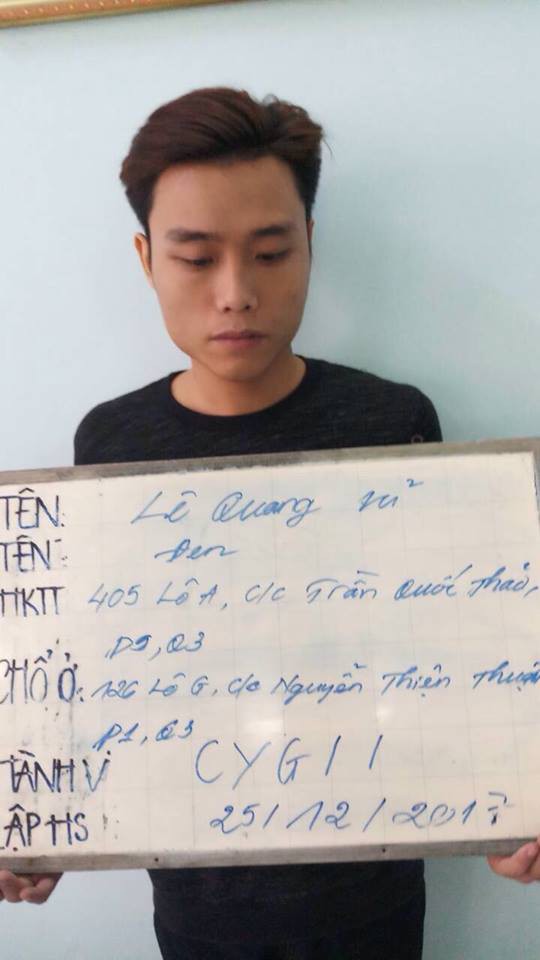 TÊN: Lê Quang
TÊN: Đen
HKTT 405 Lô A, c/c Trần Quốc Thảo,
P9, Q3
CHỔ Ở: 126 Lô G, c/c Nguyễn Thiện Thuật
P1, Q3
TÀNH VI CYGTT
ẬP HS 25/12/2017